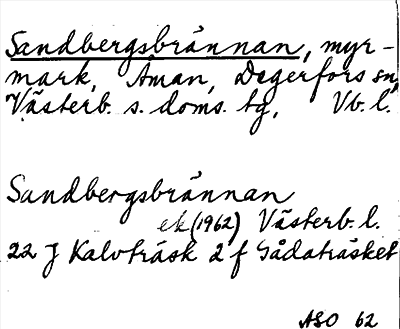 Sandbergsbrännan, myr-
mark, Åman, Degerfors sn,
Västerb. s. doms. tg, Vb. l.
Sandbergsbrännan
ek (1962) Västerb. l.
22 J Kalvträsk 2 f Gådaträsket
ASO 62